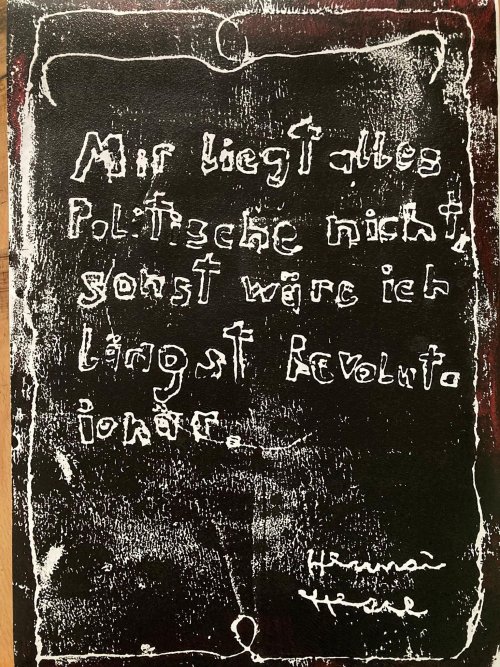 Mir liegt alles
Politische nicht,
sonst wäre ich
längst Revolut-
ionär.